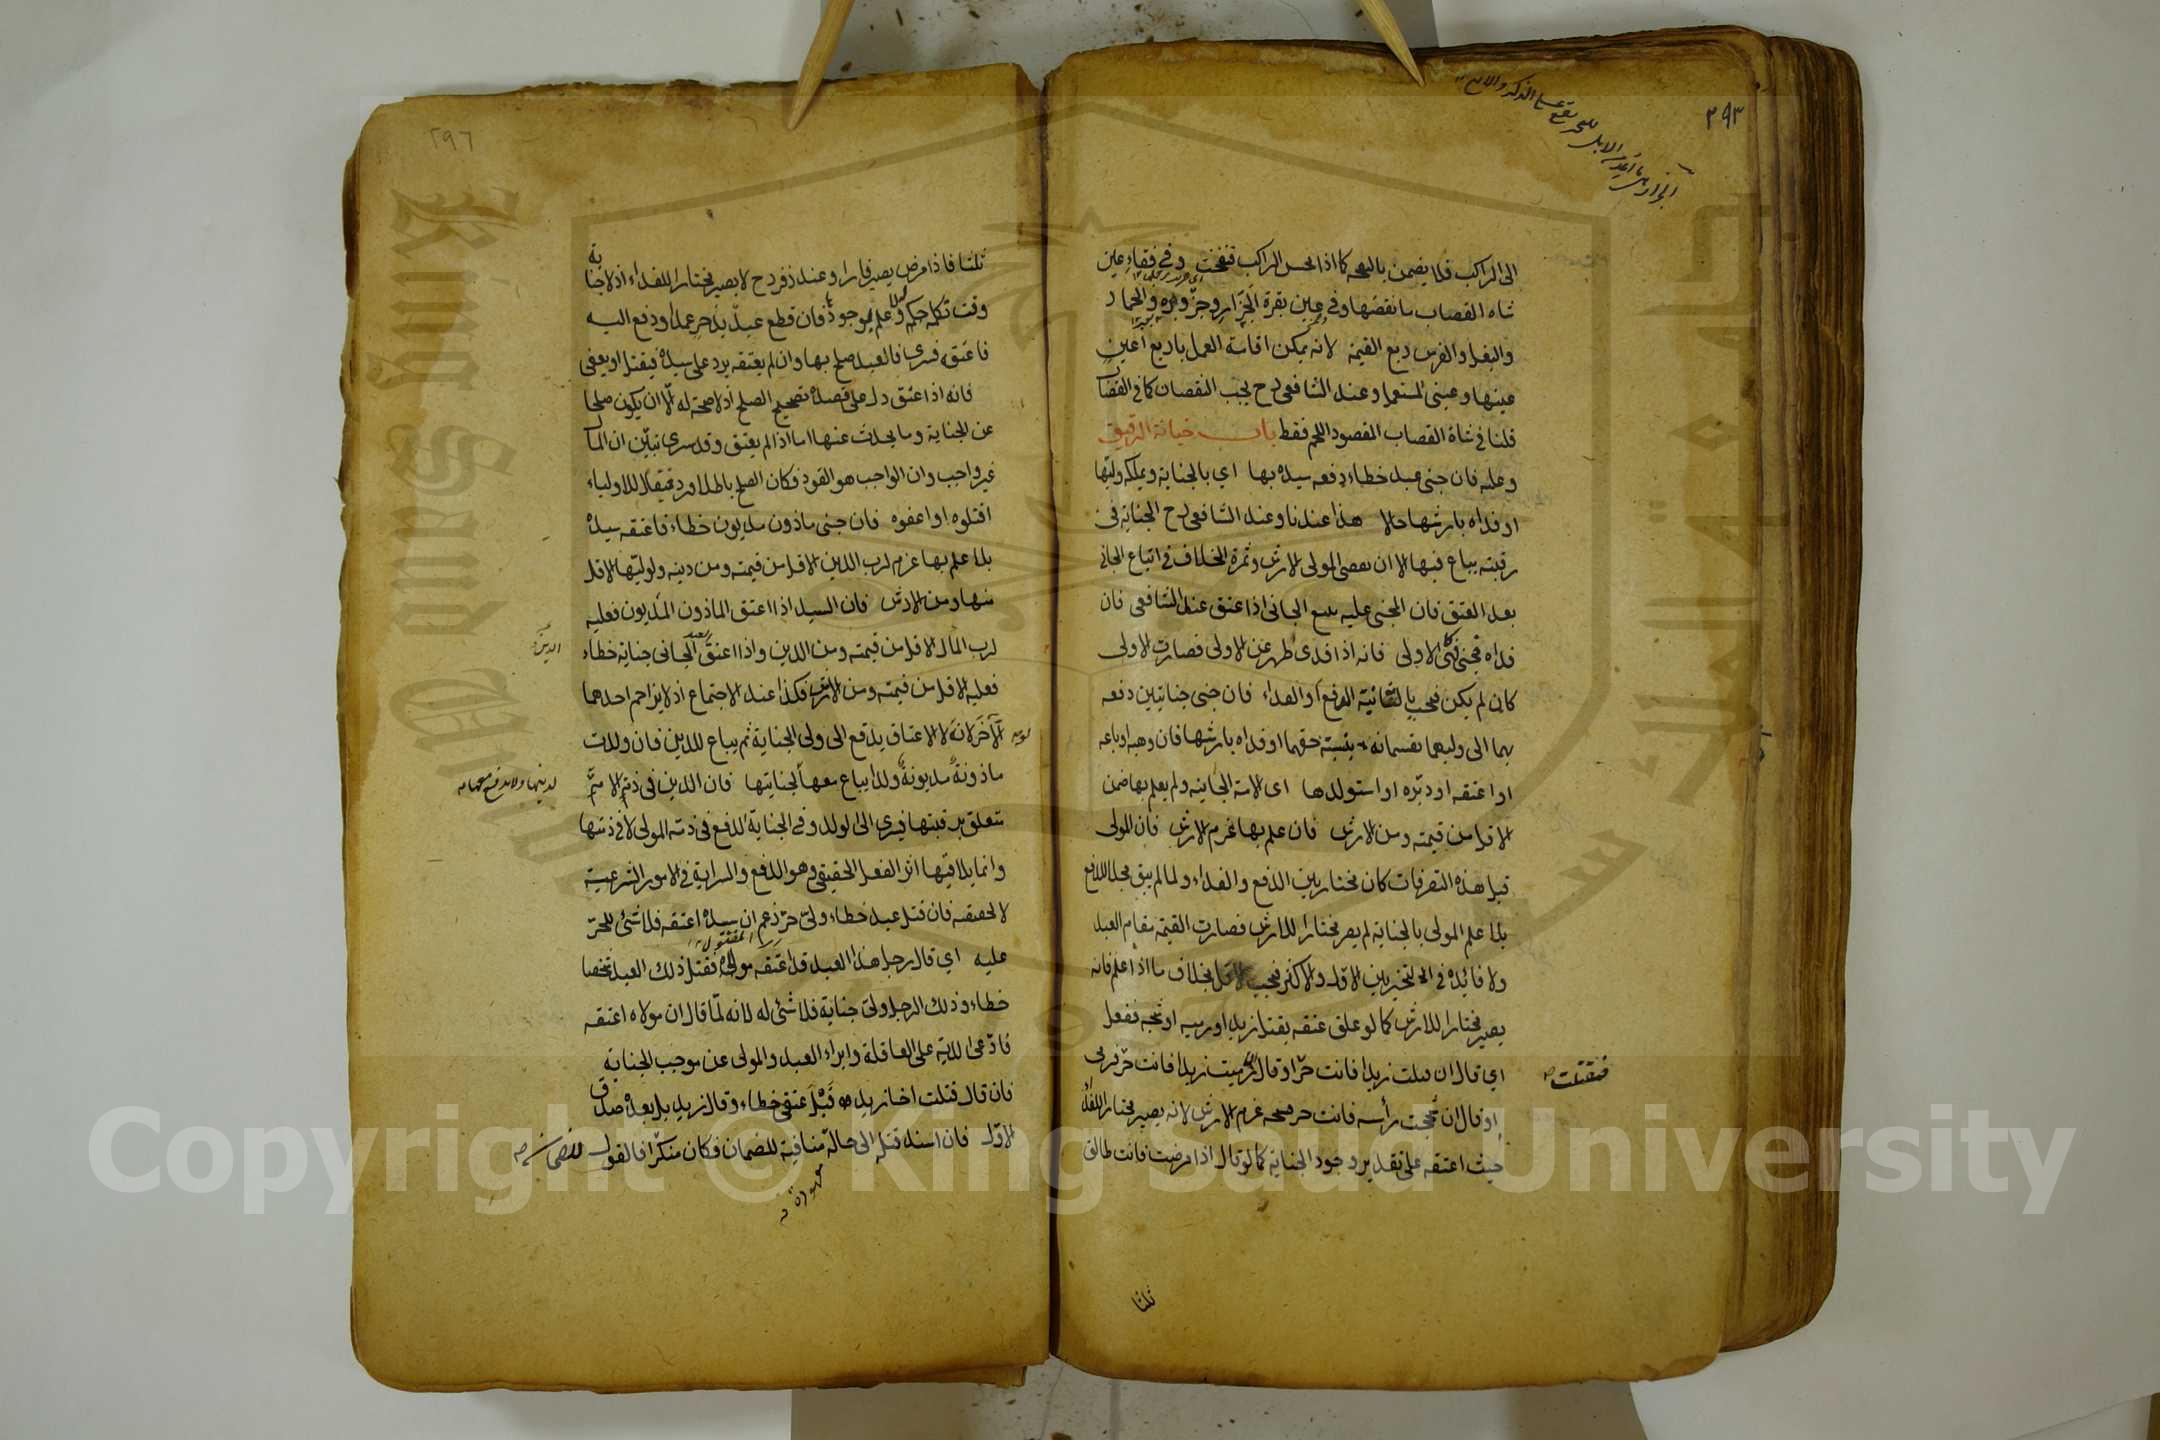 ٣٩٣
الجزور من الابل يقع على الذكر والانثى
الى الراكب فلا يضمن بالنفحة كما اذا نخس الراكب فنفحت وفي فقاء عين
شاة القصاب ما نقصها وفي عين بقرة الجزّار وجزوره والحمار
والبغل والفرس ربع القيمة لانه يمكن اقامة العمل باربع اعين
عينيها وعيني المستعمل وعند الشافعي رح يجب النقصان كما في القصّاب
قلنا في شاة القصاب المقصود اللحم فقط باب جناية الرقيق
وعليه فان جنى عبد خطاء دفعه سيده بها اي بالجناية ويملكه وليّها
او فداه بارشها حالا هذا عندنا وعند الشافعي رح الجناية في
رقبته يباع فيها الا ان يقضي المولى الارش وثمرة الخلاف في اتباع الجاني
بعد العتق فان المجني عليه يتبع الجاني اذا عتق عند الشافعي فان
فداه فجنى فكالاولى فانه اذا فدى طهر عن الاولى فصارت الاولى
كان لم يكن فيجب بالثانية الدفع او الفداء فان جنى جنايتين دفعه
بهما الى وليهما يقسمانه بنسبة حقهما او فداه بارشها فان وهبه او باعه
او اعتقه او دبّره او استولدها اي الامة الجانية ولم يعلم بها ضمن
الاقل من قيمته ومن الارش فان علم بها غرم الارش فان المولى
قبل هذه التصرفات كان مختارا بين الدفع والفداء ولما لم يبق محلا للدفع
بلا علم المولى بالجناية لم يصر مختارا للارش فصارت القيمة مقام العبد
ولا فائدة في التخيير بين الاقل والاكثر فيجب الاقل بخلاف ما اذا علم فانه
يصير مختارا للارش كما لو علق عتقه بقتل زيد او رميه او شجه ففعل
اي قال ان قتلت زيدا فانت حرّ او قال ان رميت زيدا فانت حرّ فرمى
فقتلت
او قال ان شججت رأسه فانت حر فشجه غرم الارش لانه يصير مختارا للفداء
حيث اعتقه على تقدير وجود الجناية كما لو قال اذا مرضت فانت طالق
ثلثا
٢٩٦
ثلثا فاذا مرض يصير فارا وعند زفر رح لا يصير مختارا للفداء اذ لا جناية
وقت تكلمه ولا علم بوجوده فان قطع عبد يد حر عمدا ودفع اليه
فاعتقه فسرى فالعبد صلح بها وان لم يعتقه يرد على سيده فيقتل او يعفى
فانه اذا عتق دل على قصده تصحيح الصلح اذ لا صحة له الا ان يكون صلحا
عن الجناية وما يحدث عنها اما اذا لم يعتق وقد سرى تبيّن ان المال
غير واجب وان الواجب هو القود فكان الصلح باطلا ورد فيقال للاولياء
اقتلوه او اعفوه فان جنى ماذون مديون خطاء فاعتقه سيده
بلا علم بها غرم لرب الدين الاقل من قيمته ومن دينه ولوليّها الاقل
منها ومن الارش فان السيد اذا اعتق الماذون المديون فعليه
لرب المال الاقل من قيمته ومن الدين واذا اعتق العبد الجاني جناية خطاء
فعليه الاقل من قيمته ومن الارش فكذا عند الاجتماع اذ لا يزاحم احدهما
الآخر لانه لولا الاعتاق يدفع الى ولي الجناية ثم يباع للدين فان ولدت
ماذونة مديونة ولدا يباع معها لدينها ولا يدفع معها لجنايتها فان الدين في ذمة الامة
متعلق برقبتها فيسري الى الولد وفي الجناية الدفع في ذمة المولى لا في ذمتها
وانما يلاقيها اثر الفعل الحقيقي وهو الدفع والسراية في الامور الشرعية
لا الحقيقية فان قتل عبد خطاء وليّ حرّ زعم ان سيده اعتقه فلا شئ للحرّ
عليه اي قال رجل هذا العبد قد اعتقه مولاه فقتل ذلك العبد شخصا
خطاء وذلك الرجل وليّ جناية فلا شئ له لانه لمّا قال ان مولاه اعتقه
فادّعى الدية على العاقلة وابراء العبد والمولى عن موجب الجناية
فان قال قتلت اخا زيد قبل عتقي خطاء وقال زيد بل بعده صدّق
الاوّل فان اسند قتله الى حالة منافية للضمان فكان منكرا فالقول
King Saud University
Copyright © King Saud University